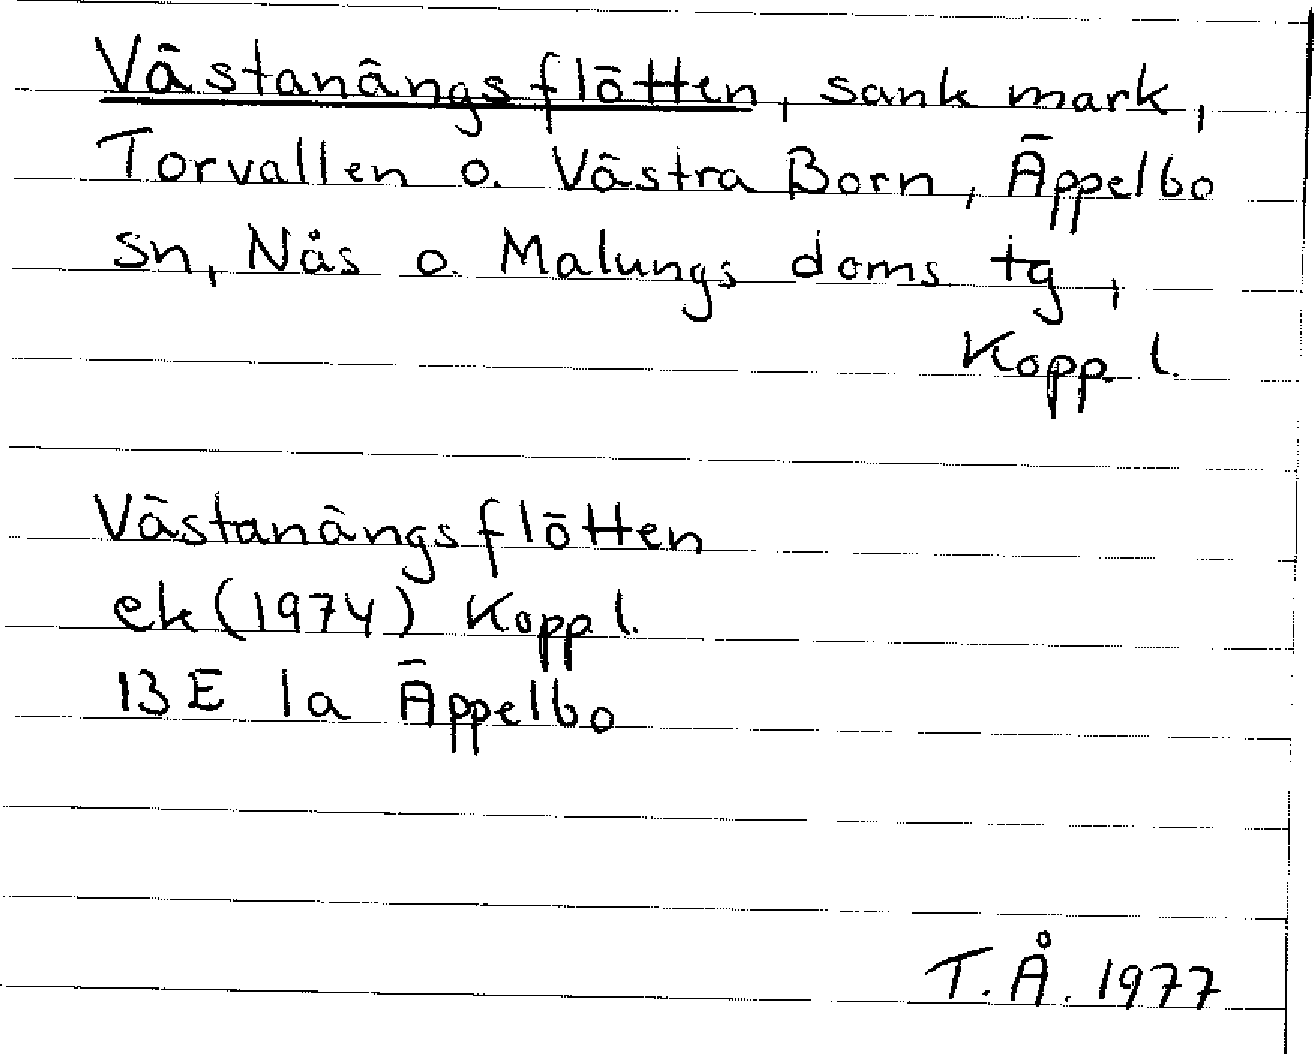 Västanängsflötten, sank mark,
Torvallen o. Västra Born, Äppelbo
sn, Nås o. Malungs doms. tg,
Kopp. l.
Västanängsflötten
ek (1974) Kopp l.
13 E 1a Äppelbo
T.Å. 1977